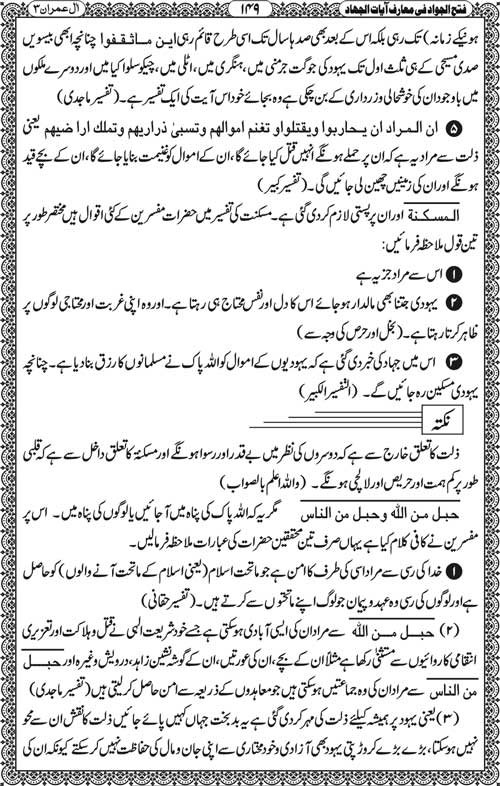 فتح الجواد فی معارف آیات الجهاد ۱۴۹ آل عمران ۳
ہونیکے زمانہ) تک رہی بلکہ اس کے بعد بھی صدہا سال تک اسی طرح قائم رہی این ماثقفوا چنانچہ ابھی بیسویں
صدی مسیحی کے ہی ثلث اول تک یہود کی جو گت جرمنی میں، ہنگری میں، اٹلی میں، چیکوسلواکیا میں اور دوسرے ملکوں
میں باوجود ان کی خوشحالی و زرداری کے بن چکی ہے وہ بجائے خود اس آیت کی ایک تفسیر ہے۔ (تفسیر ماجدی)
۵ ان المراد ان یحاربوا ویقتلوا و تغنم اموالهم وتسبیٰ ذراریهم وتملك اراضیهم یعنی
ذلت سے مراد یہ ہے کہ ان پر حملے ہونگے انہیں قتل کیا جائے گا، ان کے اموال کو غنیمت بنایا جائے گا، ان کے بچے قید
ہونگے اور ان کی زمینیں چھین لی جائیں گی۔ (تفسیر کبیر)
المسكنة اور ان پر پستی لازم کردی گئی ہے۔ مسکنت کی تفسیر میں حضرات مفسرین کے کئی اقوال ہیں مختصر طور پر
تین قول ملاحظہ فرمائیں:
۱ اس سے مراد جزیہ ہے
۲ یہودی جتنا بھی مالدار ہو جائے اس کا دل اور نفس محتاج ہی رہتا ہے۔ اور وہ اپنی غربت اور محتاجی لوگوں پر
ظاہر کرتا رہتا ہے۔ (بخل اور حرص کی وجہ سے)
۳ اس میں جہاد کی خبر دی گئی ہے کہ یہودیوں کے اموال کو اللہ پاک نے مسلمانوں کا رزق بنا دیا ہے۔ چنانچہ
یہودی مسکین رہ جائیں گے۔ (التفسیر الکبیر)
نکتہ
ذلت کا تعلق خارج سے ہے کہ دوسروں کی نظر میں بے قدر اور رسوا ہونگے اور مسکنۃ کا تعلق داخل سے ہے کہ قلبی
طور پر کم ہمت اور حریص اور لالچی ہونگے۔ (واللہ اعلم بالصواب)
حبل من الله وحبل من الناس مگر یہ کہ اللہ پاک کی پناہ میں آجائیں یا لوگوں کی پناہ میں۔ اس پر
مفسرین نے کافی کلام کیا ہے یہاں صرف تین محققین حضرات کی عبارات ملاحظہ فرمالیں۔
۱ خدا کی رسی سے مراد اسی کی طرف کا امن ہے جو ماتحت اسلام (یعنی اسلام کے ماتحت آنے والوں) کو حاصل
ہے اور لوگوں کی رسی وہ عہد و پیمان جو لوگ اپنے ماتحتوں سے کرتے ہیں۔ (تفسیر حقانی)
(۲) حبل من الله سے مراد ان کی ایسی آبادی ہوسکتی ہے جسے خود شریعت الٰہی نے قتل و ہلاکت اور تعزیری
انتقامی کاروائیوں سے مستثنیٰ رکھا ہے مثلاً ان کے بچے، ان کی عورتیں، ان کے گوشہ نشین زاہد، درویش وغیرہ اور حبل
من الناس سے مراد ان کی وہ جماعتیں ہوسکتی ہیں جو معاہدوں کے ذریعہ سے امن حاصل کرلیتی ہیں (تفسیر ماجدی)
(۳) یعنی یہود پر ہمیشہ کیلئے ذلت کی مہر کردی گئی ہے یہ بدبخت جہاں کہیں پائے جائیں ذلت کا نقش ان سے محو
نہیں ہوسکتا، بڑے بڑے کروڑ پتی یہود بھی آزادی و خود مختاری سے اپنی جان و مال کی حفاظت نہیں کرسکتے کیونکہ ان کی